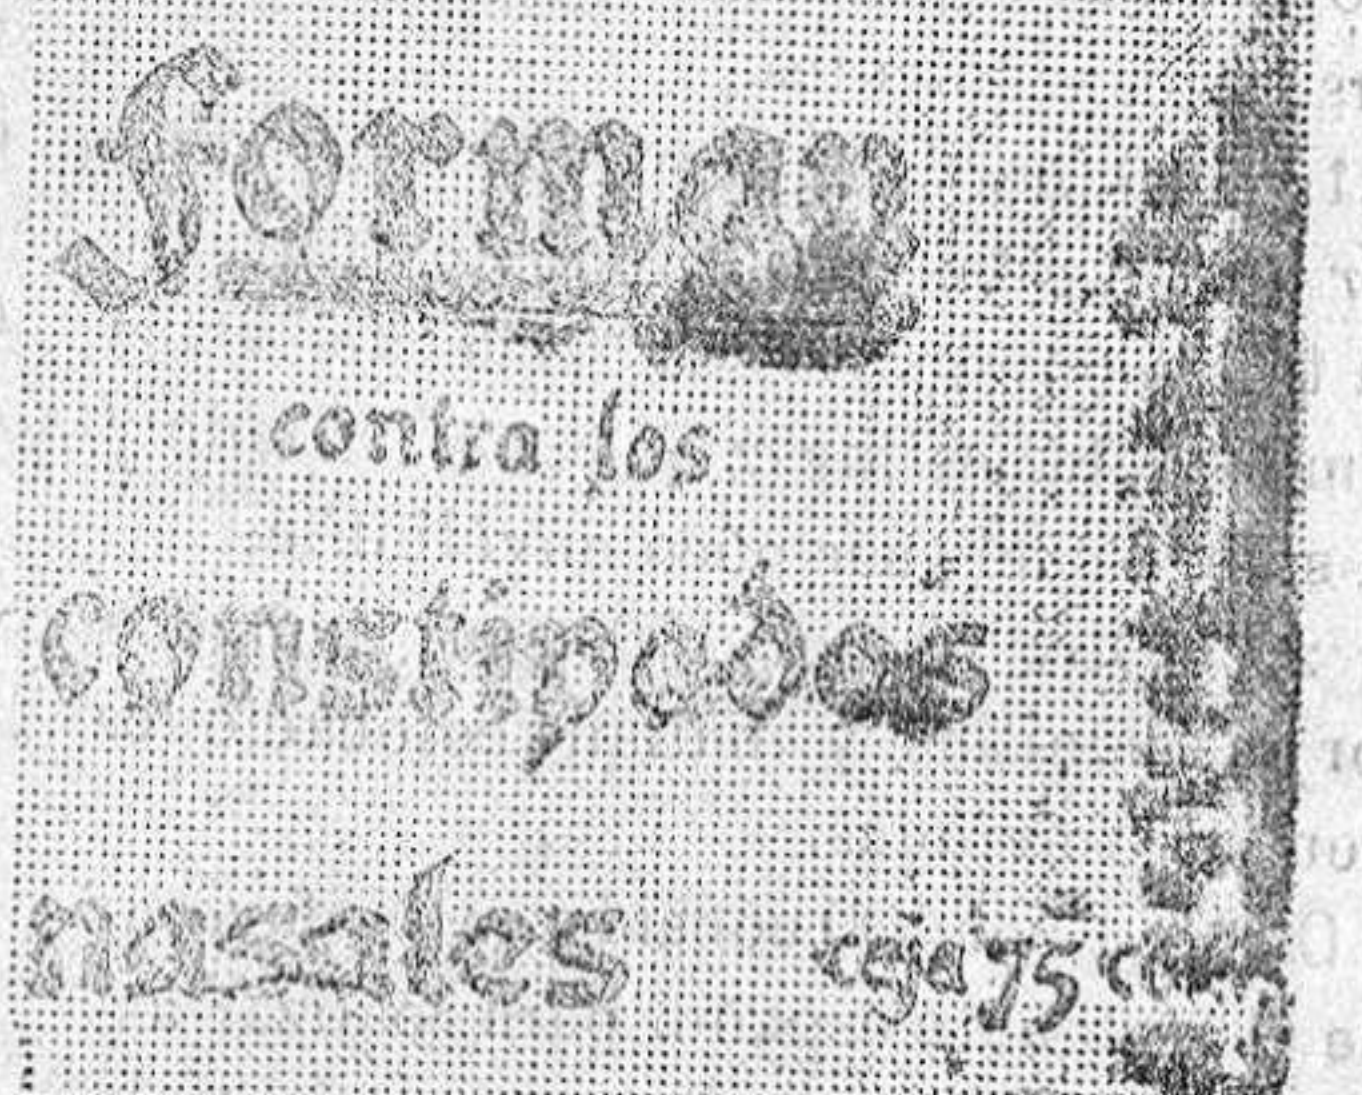 forman
contra los
constipados
nasales caja 75